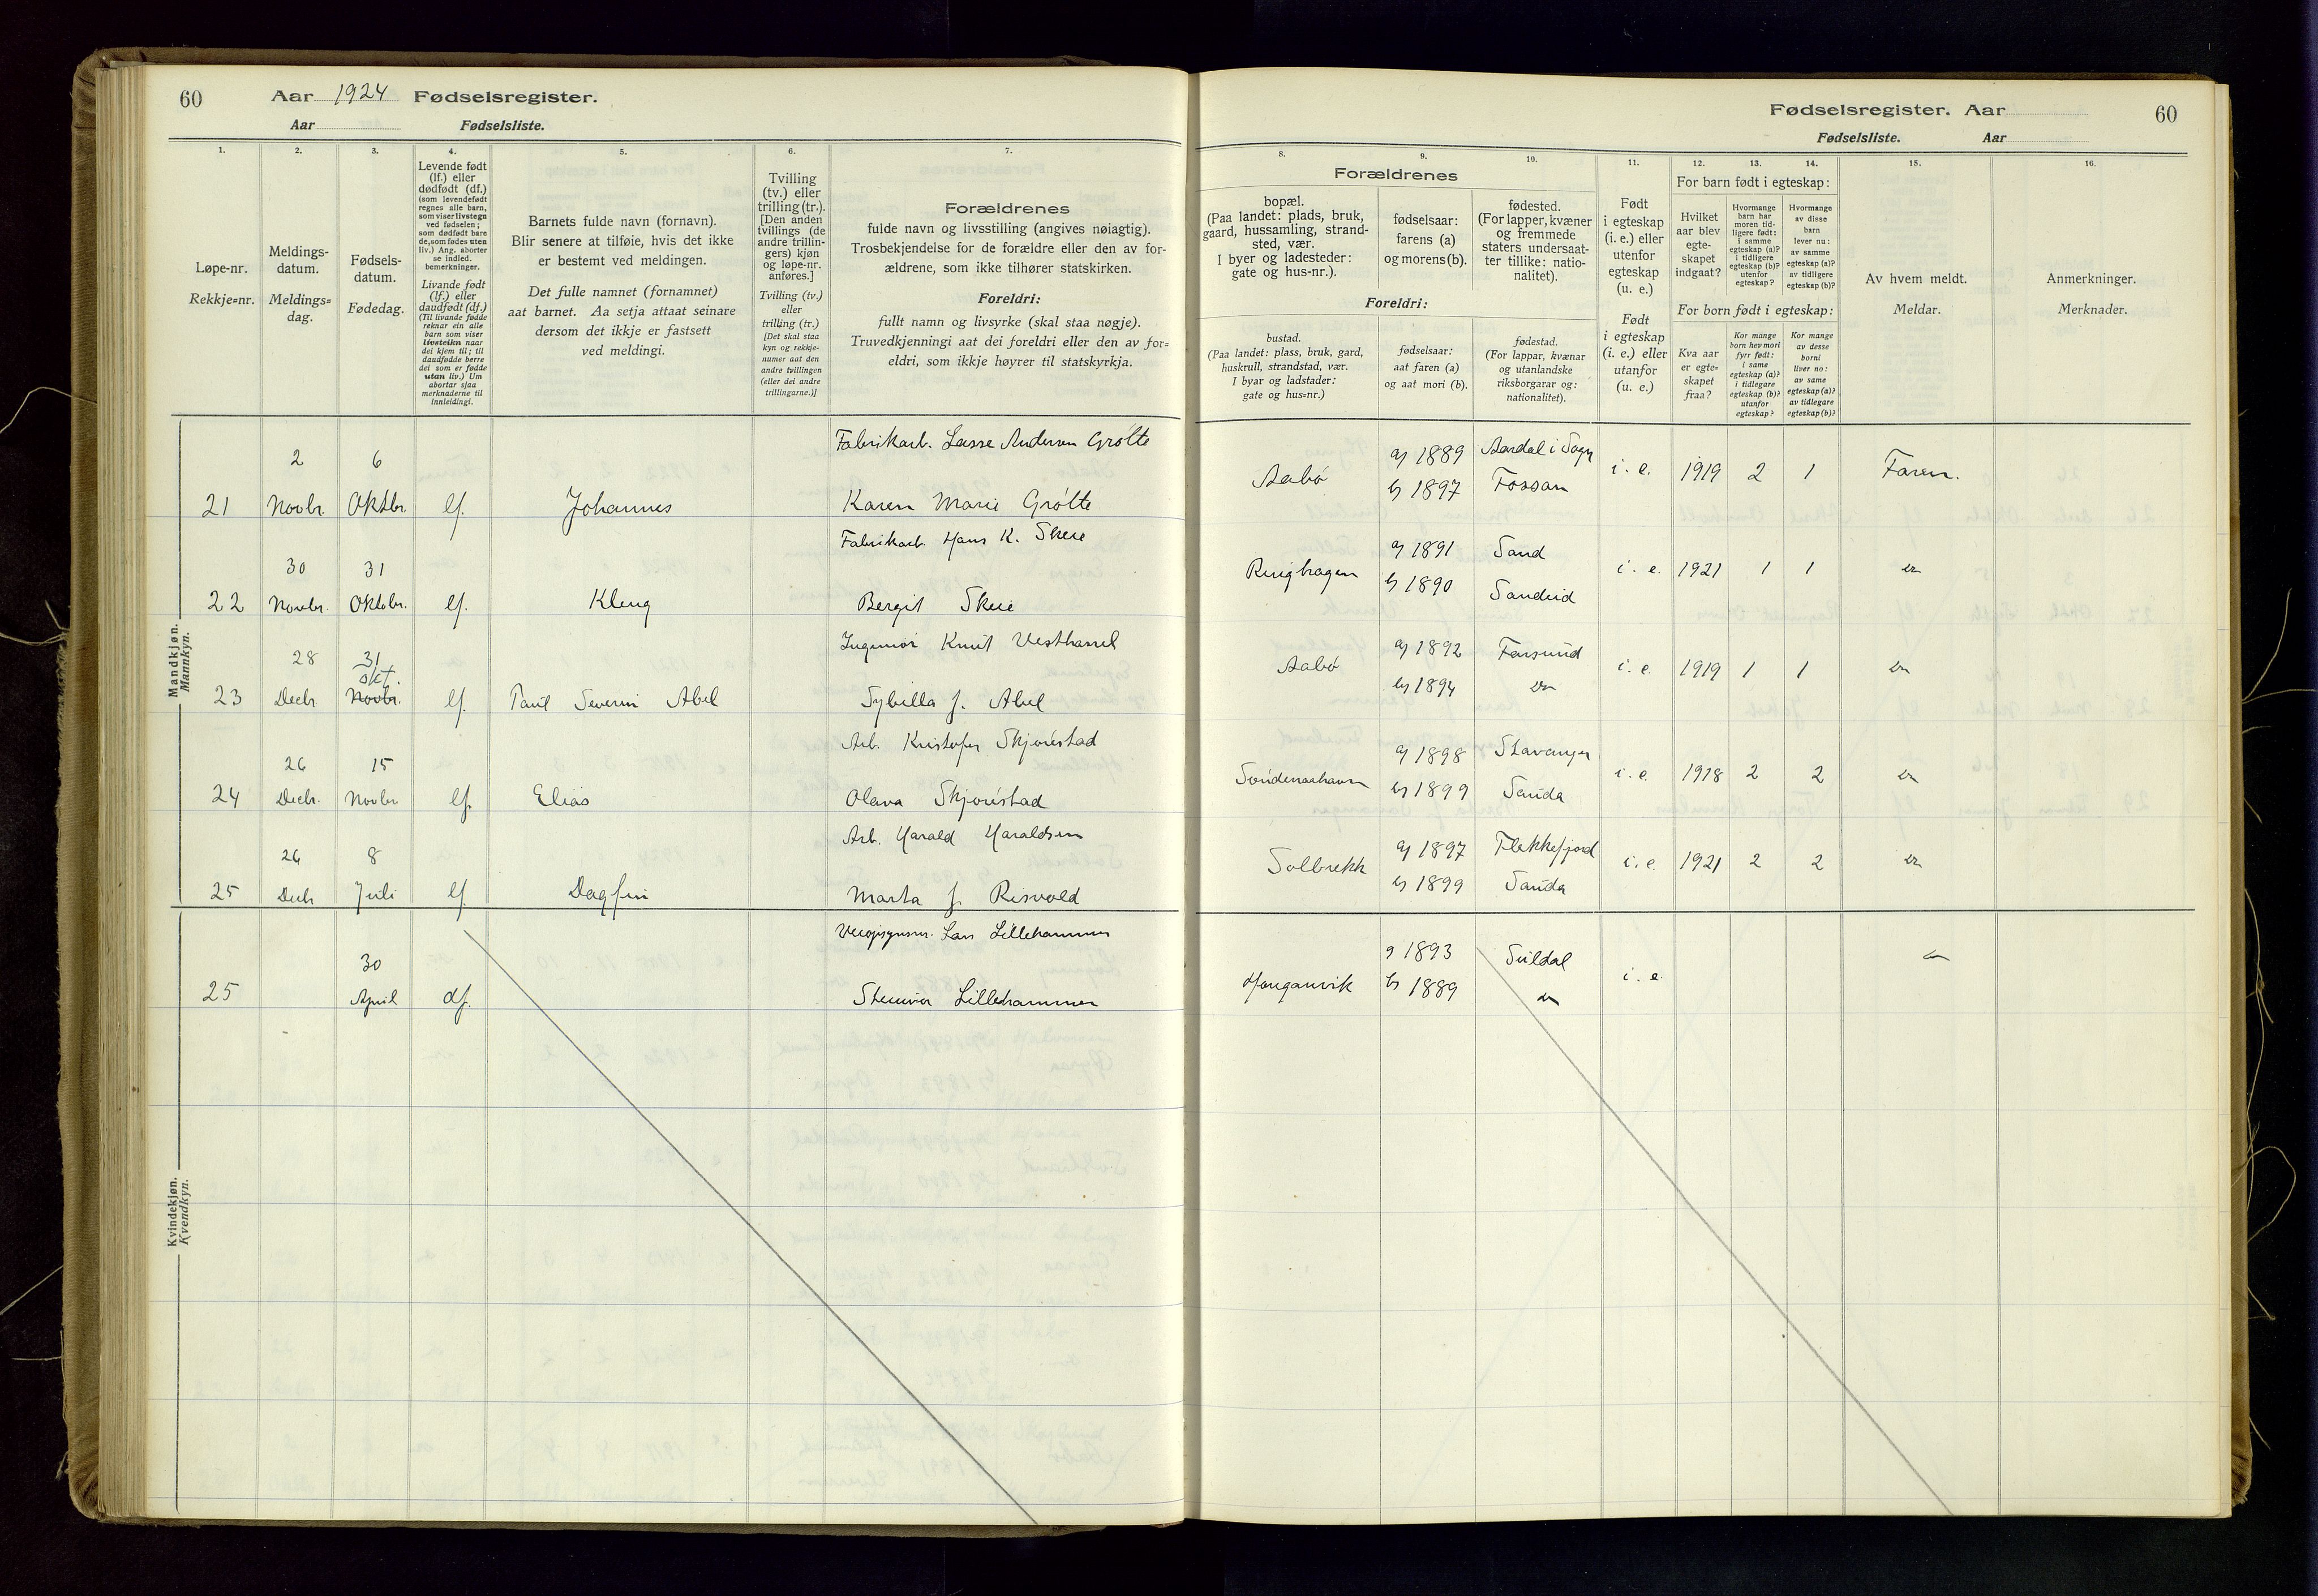 60 Aar 1924 Fødselsregister.
Aar Fødselsliste.
Fødselsregister. Aar 60
Fødselsliste. Aar
1. 2. 3. 4. 5. 6. 7.
Løpe-nr.
Rekkje=nr.
Meldings-
datum.
Meldings=
dag.
Fødsels-
datum.
Fødedag.
Levende født
(lf.) eller
dødfødt (df.)
(som levendefødt
regnes alle barn,
som viser livstegn
ved fødselen;
som dødfødt bare
de, som fødes uten
liv.) Ang. aborter
se indled.
bemerkninger.
Livande født
(lf.) eller
daudfødt (df.)
(Til livande fødde
reknar ein alle
barn som viser
livsteikn naar
dei kjem til; til
daudfødde berre
dei som er fødde
utan liv.) Um
abortar sjaa
merknaderne til
innleidingi.
Barnets fulde navn (fornavn).
Blir senere at tilføie, hvis det ikke
er bestemt ved meldingen.
Det fulle namnet (fornamnet)
aat barnet. Aa setja attaat seinare
dersom det ikkje er fastsett
ved meldingi.
Tvilling
(tv.) eller
trilling (tr.).
[Den anden
tvillings (de
andre trillin-
gers) kjøn
og løpe-nr.
anføres.]
Tvilling (tv.)
eller
trilling (tr.)
[Det skal staa
kyn og rekkje-
numer aat den
andre tvillingen
(eller dei andre
trillingarne.)]
Forældrenes
fulde navn og livsstilling (angives nøiagtig).
Trosbekjendelse for de forældre eller den av for-
ældrene, som ikke tilhører statskirken.
Foreldri:
fullt namn og livsyrke (skal staa nøgje).
Truvedkjenningi aat dei foreldri eller den av for=
eldri, som ikkje høyrer til statskyrkja.
8. 9. 10. 11. 12. 13. 14. 15. 16.
Forældrenes
bopæl.
(Paa landet: plads, bruk,
gaard, hussamling, strand-
sted, vær.
I byer og ladesteder:
gate og hus-nr.).
fødselsaar:
farens (a)
og morens (b).
fødested.
(For lapper, kvæner
og fremmede
staters undersaat-
ter tillike: natio-
nalitet).
Foreldri:
bustad.
(Paa landet: plass, bruk, gard,
huskrull, strandstad, vær.
I byar og ladstader:
gate og hus=nr.)
fødselsaar:
aat faren (a)
og aat mori (b).
fødestad.
(For lappar, kvænar
og utanlandske
riksborgarar og:
nationalitet).
Født
i egteskap
(i. e.) eller
utenfor
egteskap
(u. e.)
Født
i egteskap
(i. e.) eller
utanfor
(u. e.)
For barn født i egteskap:
Hvilket
aar blev
egte-
skapet
indgaat?
Hvormange
barn har
moren tid-
ligere født:
i samme
egteskap (a)?
i tidligere
egteskap (b)?
utenfor
egteskap?
Hvormange
av disse
barn
lever nu:
av samme
egteskap (a)?
av tidligere
egteskap (b)?
For born født i egteskap:
Kva aar
er egte=
skapet
fraa?
Kor mange
born hev mori
fyrr født:
i same
egteskap (a)?
i tidlegare
egteskap (b)?
utanfor
egteskap?
Kor mange
av desse
borni
liver no:
av same
egteskap (a)?
av tidlegare
egteskap (b)?
Av hvem meldt.
Meldar.
Anmerkninger.
Merknader.
Mandkjøn.
Mannkyn.
Fabrikarb. Lasse Andersen Grøtte
21 2 Novbr. 6 Oktbr. lf. Johannes Karen Marie Grøtte
Aabø a) 1889 Aardal i Sogn i. e. 1919 2 1 Faren.
b) 1897 Fossan
Fabrikarb. Hans K. Skeie
22 30 Novbr. 31 Oktobr. lf. Kleng Bergit Skeie
a) 1891 Sand i. e. 1921 1 1
b) 1890 Sandeid
Ingeniør Knut Vesthassel
23 28 Decbr. 31 okt. Novbr. lf. Paul Severin Abel Sybilla f. Abel
Aabø a) 1892 Farsund i. e. 1919 1 1
b) 1894
Arb. Kristofer Skjørestad
24 26 Decbr. 15 Novbr lf. Elias Olava Skjørestad
Søndenaahavn a) 1898 Stavanger i. e. 1918 2 2
b) 1899 Sauda
Arb. Harald Haraldsen
25 26 Decbr 8 Juli lf. Dagfin Marta f. Risvold
Solbrekk a) 1897 Flekkefjord i. e. 1921 2 2
b) 1899 Sauda
Kvindekjøn.
Kvendkyn.
Lars Lillehammer
25 30 April df. Steinvør Lillehammer
Honganvik a) 1893 Suldal i. e.
b) 1889